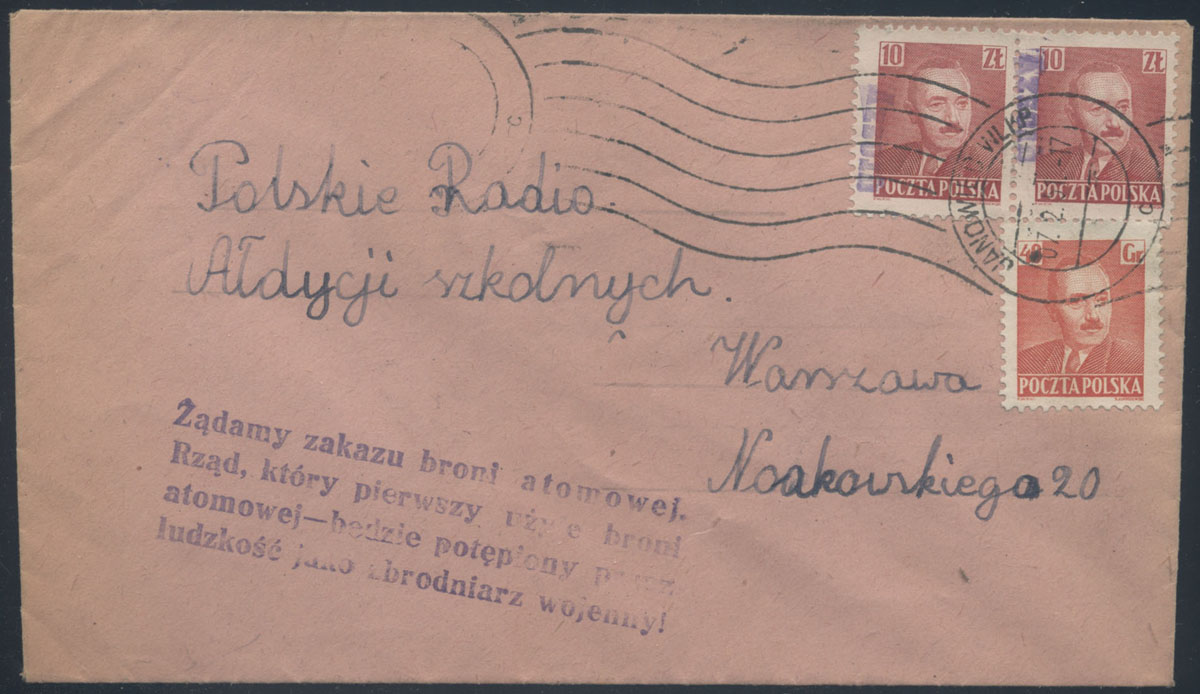 10 ZŁ
10 ZŁ
POCZTA POLSKA
POCZTA POLSKA
JANOWIEC WLKP.
Gr
POCZTA POLSKA
Polskie Radio
Ałdycji szkolnych.
Warszawa
Noakowskiego 20
Żądamy zakazu broni atomowej.
Rząd, który pierwszy użyje broni
atomowej—będzie potępiony przez
ludzkość jako zbrodniarz wojenny!